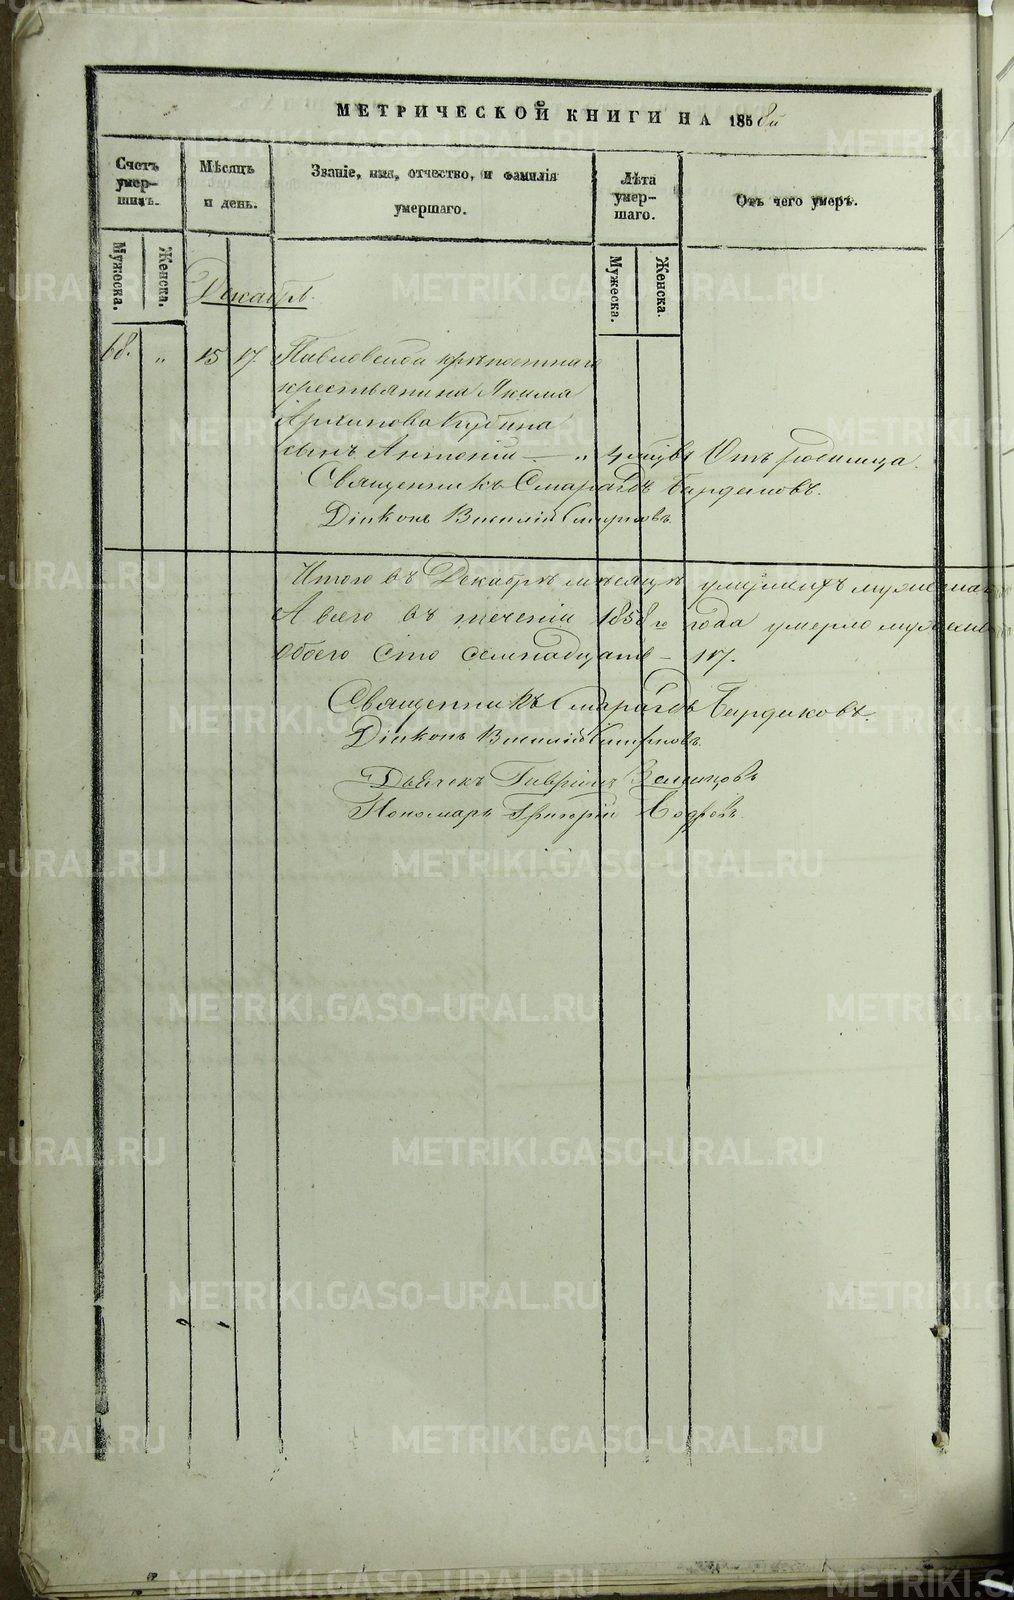 МЕТРИЧЕСКОЙ КНИГИ НА 1858й
Счетъ умер- шихъ.
Мѣсяцъ и день.
Званіе, имя, отчество, и фамилія умершаго.
Лѣта умер- шаго.
Отъ чего умеръ.
Мужеска.
Женска.
Мужеска.
Женска.
Декабрь.
68. „ 15 17. Павловскаго
крестьянина Якима
Архипова Кубина
сынъ Антоній — „ Отъ родимца.
Священникъ Смарагдъ Бардаковъ.
Діаконъ Василій Смирновъ.
Итого въ Декабрѣ мѣсяцѣ умершихъ
А всего въ теченіи 1858 го года умерло
Обоего Сто семнадцать — 117.
Священникъ Смарагдъ Бардаковъ.
Діаконъ Василій Смирновъ.
Дьячекъ Гавріилъ
Пономарь Григорій
METRIKI.GASO-URAL.RU